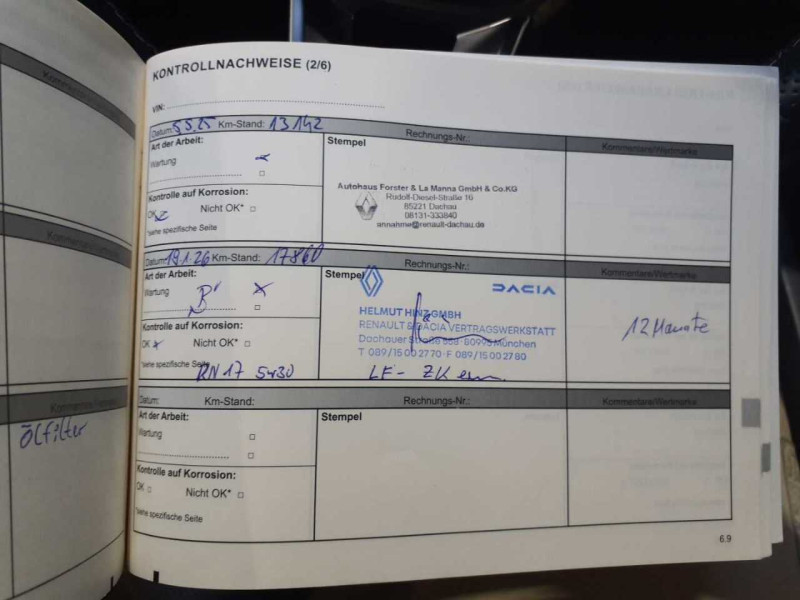 KONTROLLNACHWEISE (2/6)
VIN:
Datum: 5.5.25 Km-Stand: 13142 Rechnungs-Nr.: Kommentare/Wertmarke
Art der Arbeit:
Wartung
Stempel
Autohaus Forster & La Manna GmbH & Co.KG
Rudolf-Diesel-Straße 10
85221 Dachau
08131-333840
annahme@renault-dachau.de
Kontrolle auf Korrosion:
OK Nicht OK*
*siehe spezifische Seite
Datum: 19.1.26 Km-Stand: 17860 Rechnungs-Nr.: Kommentare/Wertmarke
Art der Arbeit:
Wartung
B
Stempel
DACIA
HELMUT HINZ GMBH
RENAULT & DACIA VERTRAGSWERKSTATT
Dachauer Straße 80995 München
T 089/15 00 27 70 · F 089/15 00 27 80
12 Monate
Kontrolle auf Korrosion:
OK Nicht OK*
*siehe spezifische Seite
RN17 5W30
Datum: Km-Stand: Rechnungs-Nr.: Kommentare/Wertmarke
Art der Arbeit:
Wartung
Stempel
Kontrolle auf Korrosion:
OK Nicht OK*
*siehe spezifische Seite
6.9
Ölfilter